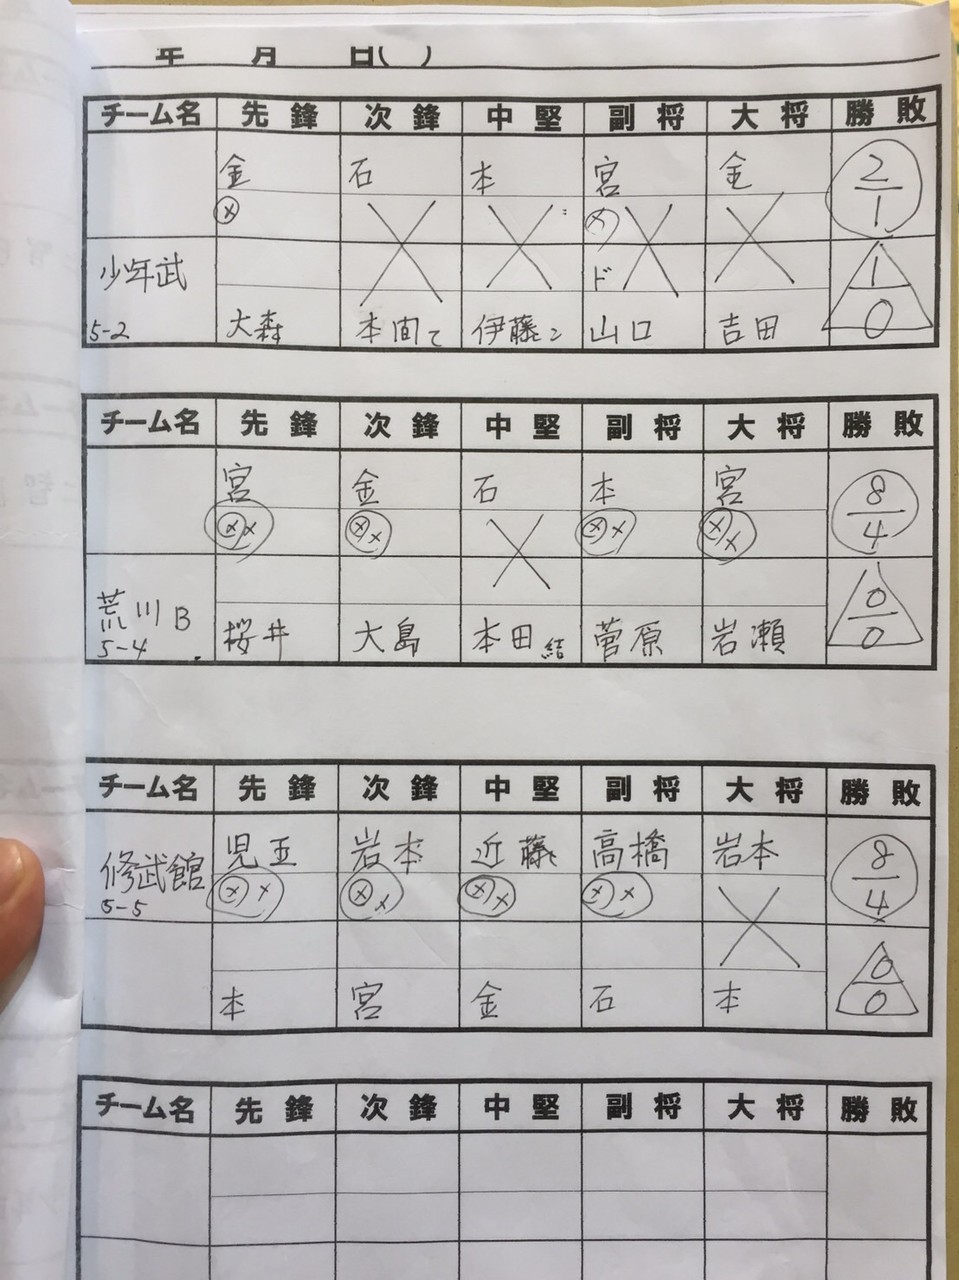 年 月 日( )
チーム名 先鋒 次鋒 中堅 副将 大将 勝敗
金 石 本 宮 金 2
メ × × メ × × 1
少年武 ド 1
5-2 大森 本間て 伊藤こ 山口 吉田 0
チーム名 先鋒 次鋒 中堅 副将 大将 勝敗
宮 金 石 本 宮 8
メメ メメ × メメ メメ 4
荒川B 0
5-4 桜井 大島 本田結 菅原 岩瀬 0
チーム名 先鋒 次鋒 中堅 副将 大将 勝敗
修武館 児玉 岩本 近藤 高橋 岩本 8
5-5 メメ メメ メメ メメ × 4
0
本 宮 金 石 本 0
チーム名 先鋒 次鋒 中堅 副将 大将 勝敗